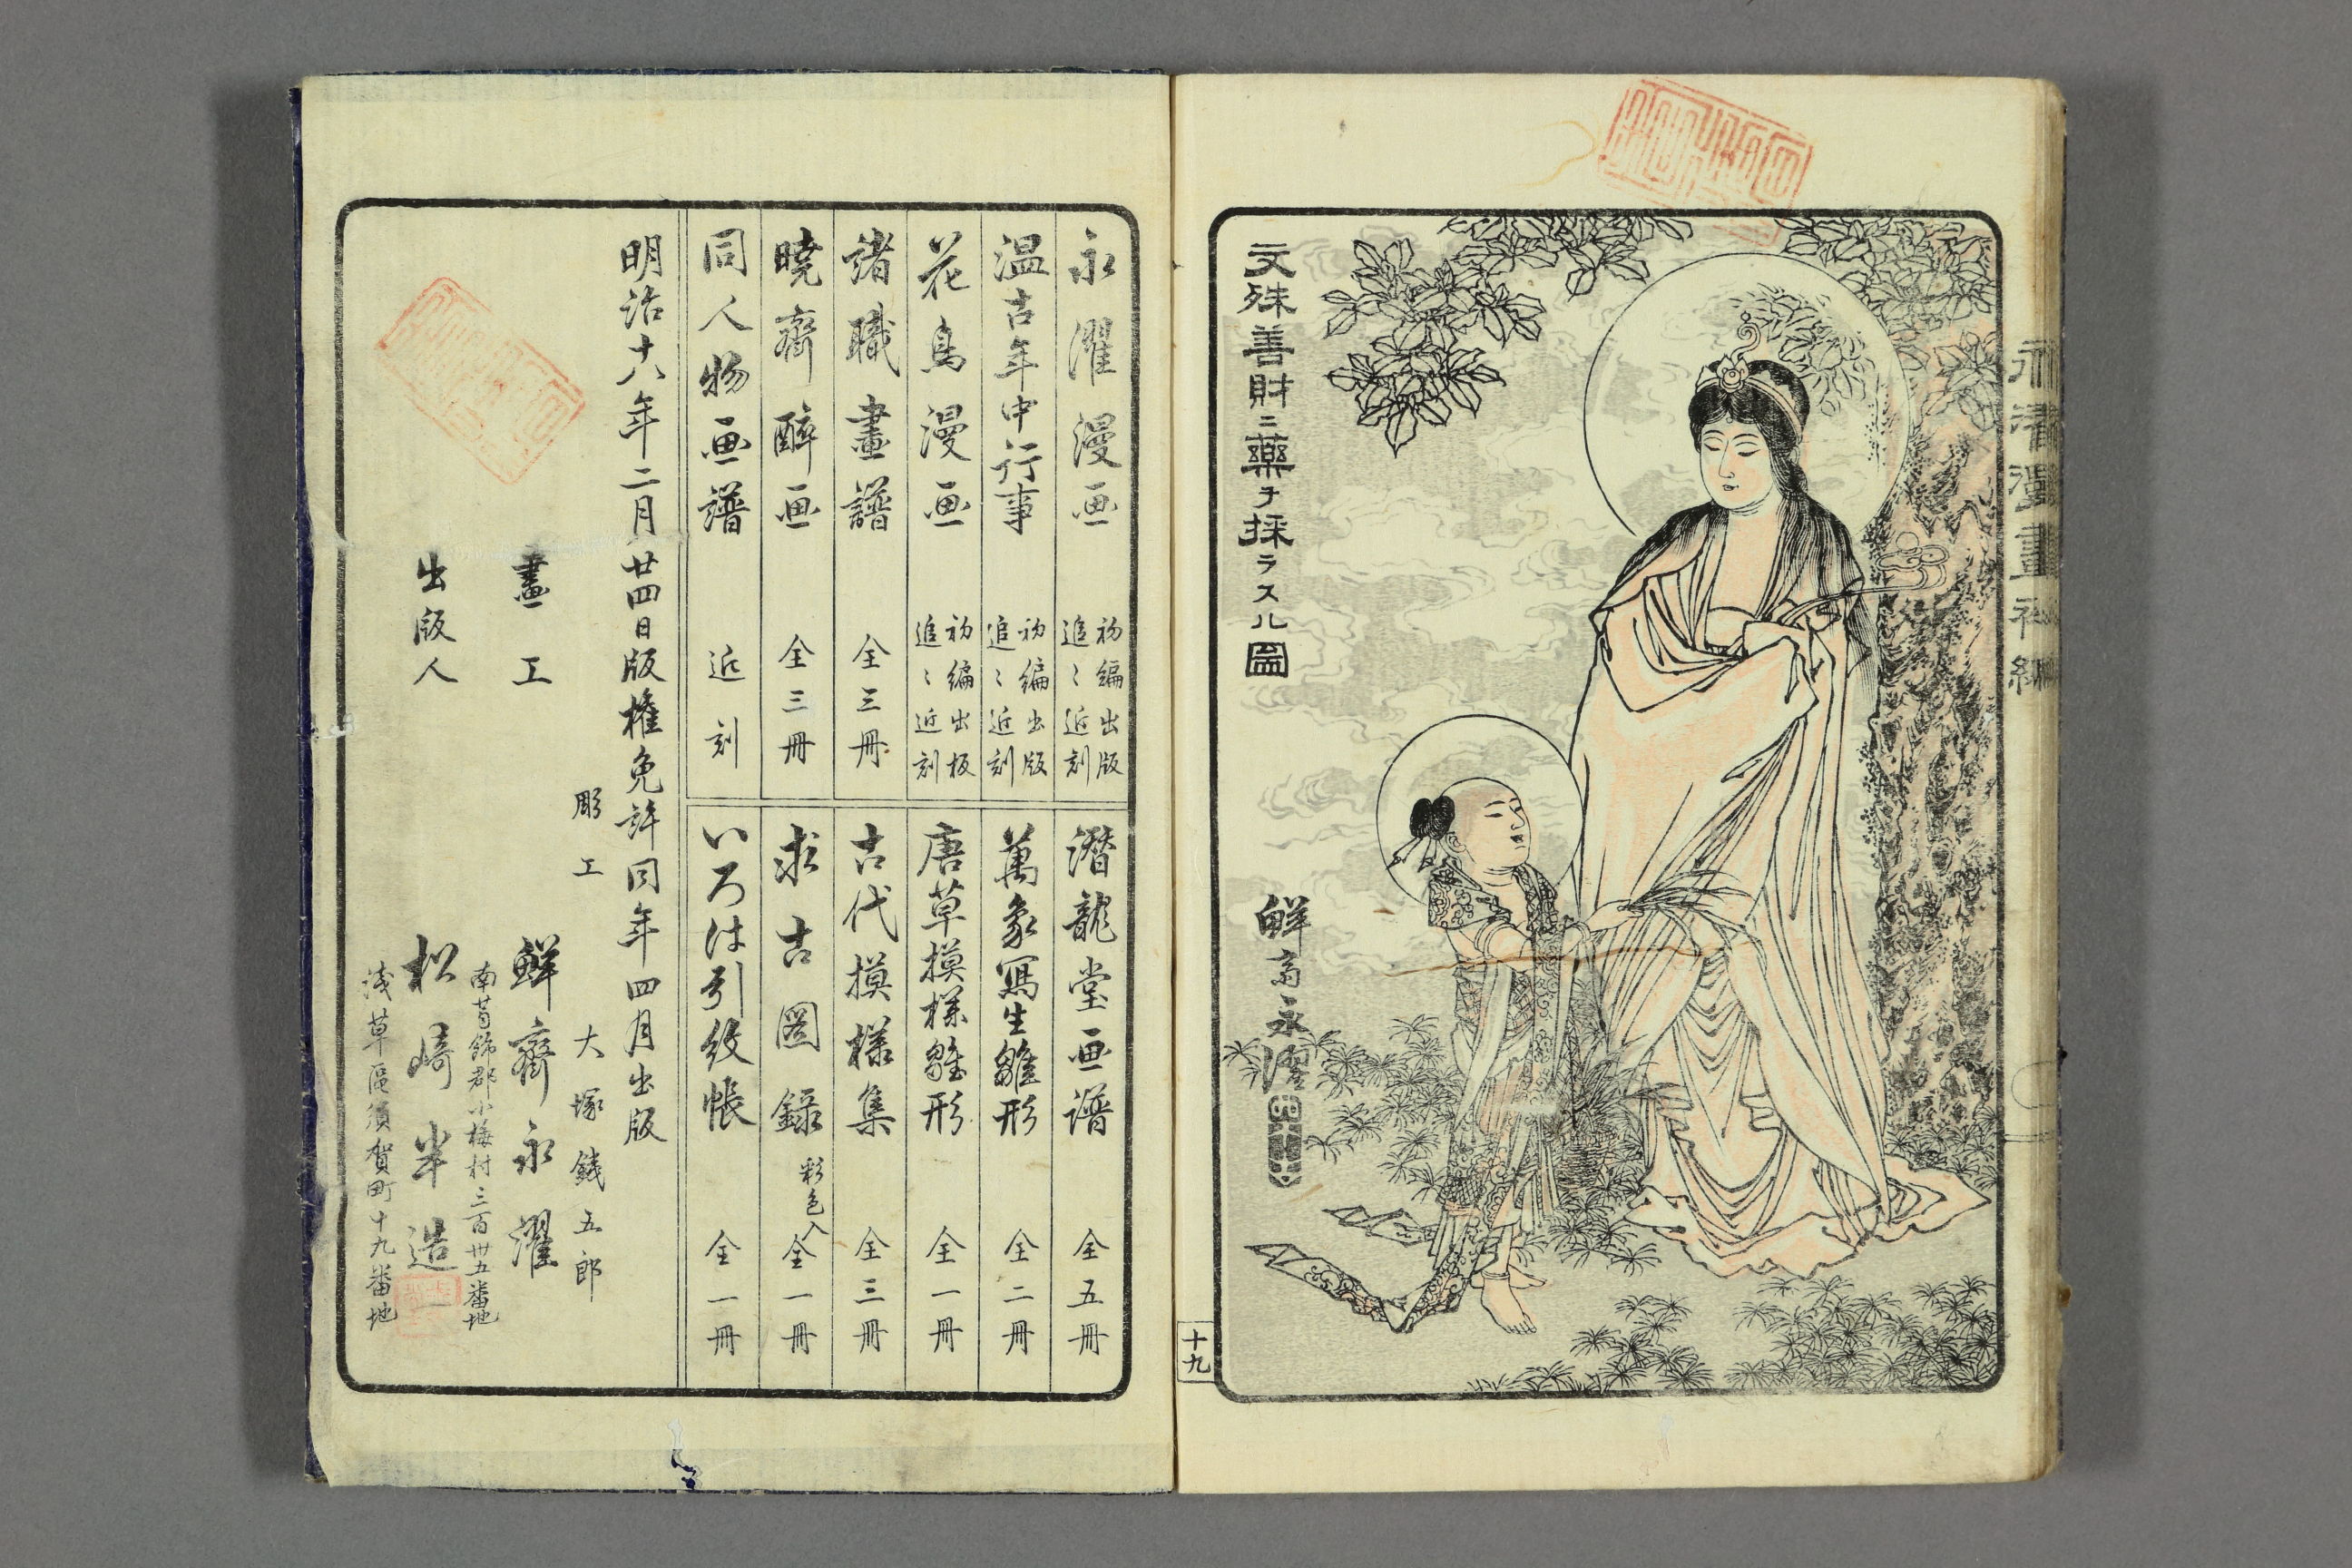 永濯漫畫初編
文殊善財ニ藥ヲ採ラスル圖
鮮斎永濯
十九
永濯漫画 初編出版 追〻近刻
温古年中行事 初編出版 追〻近刻
花鳥漫画 初編出板 追〻近刻
諸職畫譜 全三冊
曉齋酔画 全三冊
同人物画譜 近刻
潛龍堂画譜 全五冊
萬象寫生雛形 全二冊
唐草摸様雛形 全一冊
古代摸様集 全三冊
求古圖録 彩色入 全一冊
いろは引紋帳 全一冊
明治十八年二月廿四日版權免許同年四月出版
彫工 大塚銕五郎
畫工 鮮齋永濯
南葛飾郡小梅村三百卅五番地
出版人 松﨑半造
淺草區須賀町十九番地